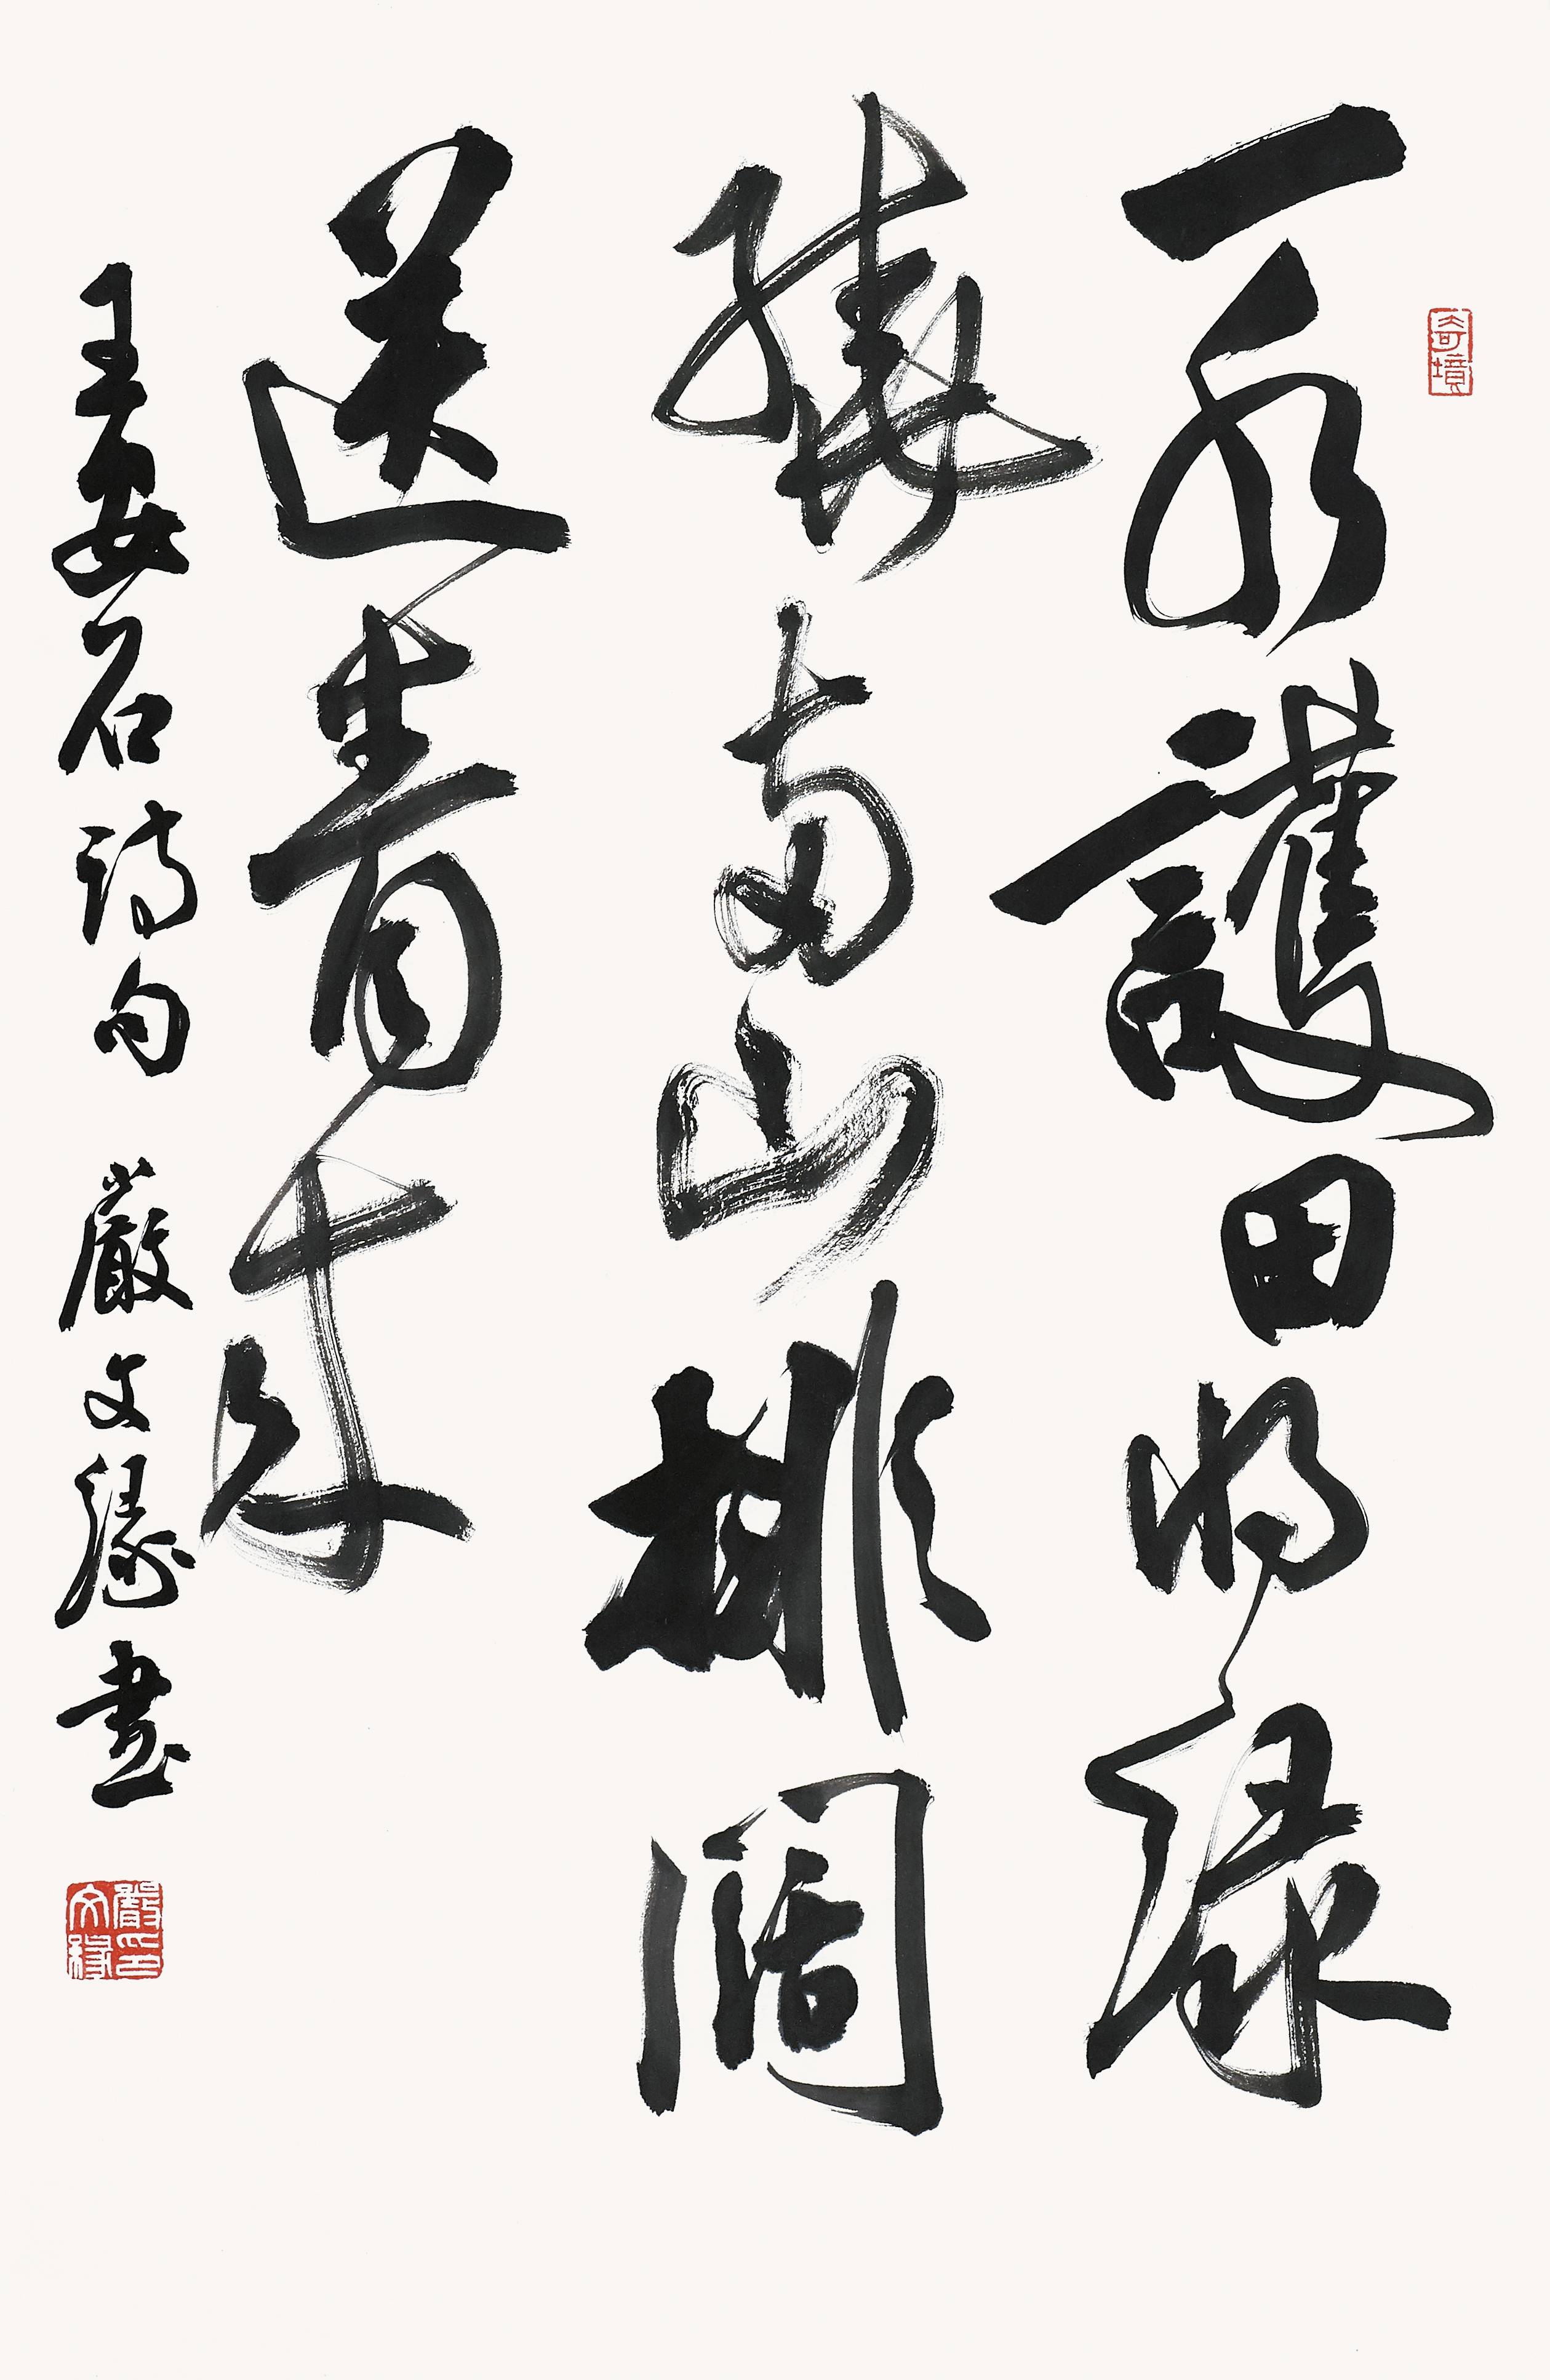 奇境
一水護田將綠
繞兩山排闥
送青來
王安石詩句 嚴文祿書
嚴印文祿